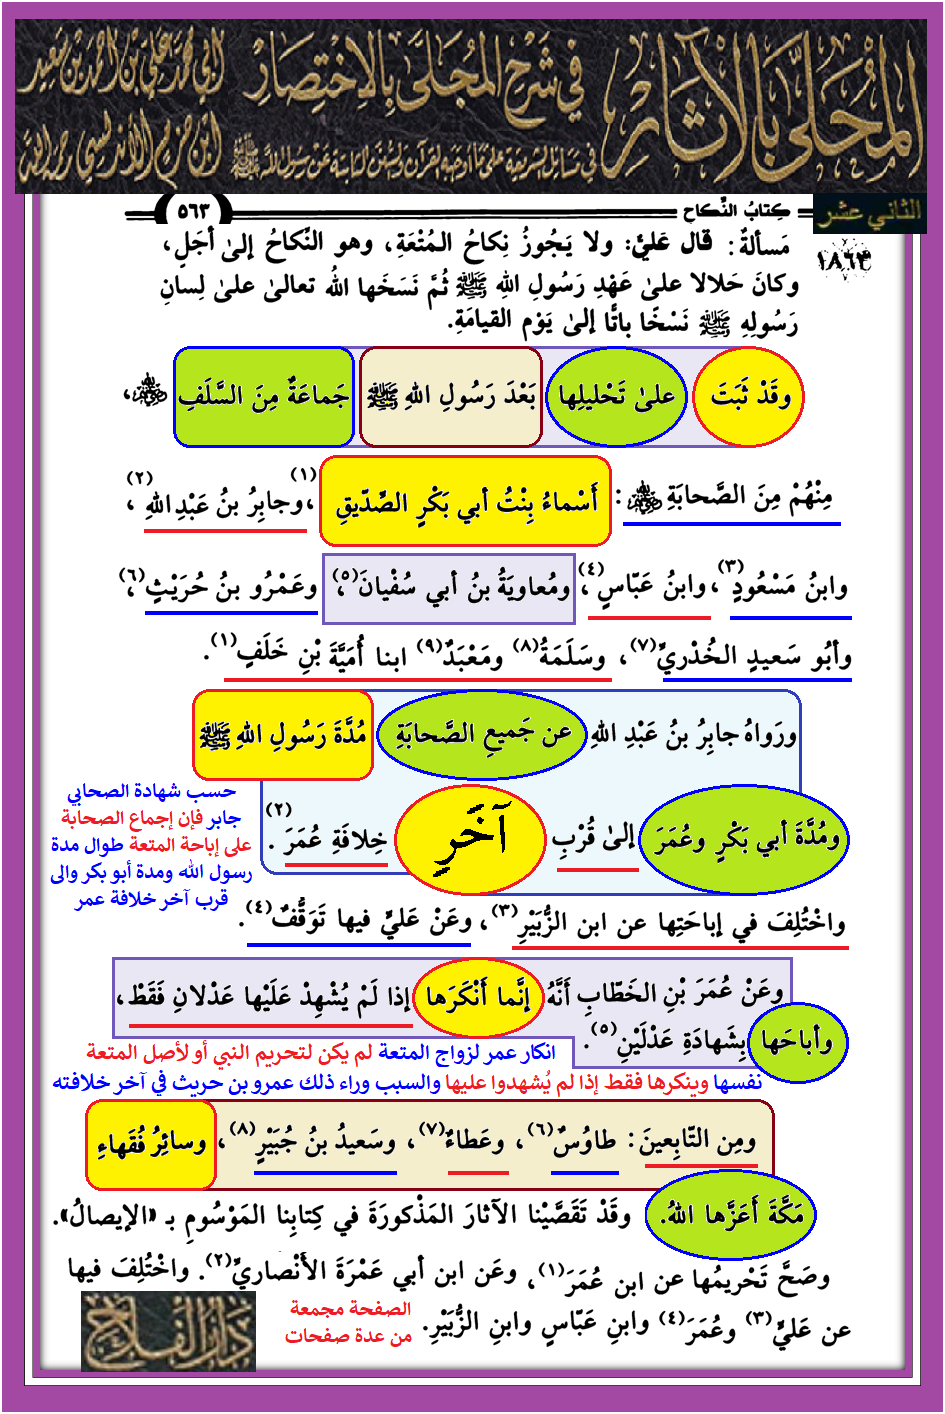 المحلى بالآثار
في شرح المجلى بالاختصار
في مسائل الشريعة على ما أوجبه القرآن والسنن الثابتة عن رسول الله ﷺ
أبي محمد علي بن أحمد بن سعيد
ابن حزم الأندلسي رحمه الله
الثاني عشر
كِتابُ النِّكاح
٥٦٣
١٨٦٣ مَسألةٌ: قال عَليٌّ: ولا يَجُوزُ نِكاحُ المُتْعَةِ، وهو النِّكاحُ إلىٰ أجَلٍ،
وكانَ حَلالا علىٰ عَهْدِ رَسُولِ اللهِ ﷺ ثُمَّ نَسَخَها اللهُ تعالىٰ علىٰ لِسانِ
رَسُولِهِ ﷺ نَسْخًا باتًّا إلىٰ يَوْمِ القيامَةِ.
وقَدْ ثَبَتَ علىٰ تَحْليلِها بَعْدَ رَسُولِ اللهِ ﷺ جَماعَةٌ مِنَ السَّلَفِ ﵃،
مِنْهُمْ مِنَ الصَّحابَةِ ﵃: أَسْماءُ بِنْتُ أبي بَكْرٍ الصِّدّيقِ (١)، وجابِرُ بنُ عَبْدِ اللهِ (٢)،
وابنُ مَسْعُودٍ (٣)، وابنُ عَبّاسٍ (٤)، ومُعاويَةُ بنُ أبي سُفْيانَ (٥)، وعَمْرُو بنُ حُرَيْثٍ (٦)،
وأبُو سَعيدٍ الخُدْريِّ (٧)، وسَلَمَةُ (٨) ومَعْبَدٌ (٩) ابنا أُمَيَّةَ بْنِ خَلَفٍ (١).
ورَواهُ جابِرُ بنُ عَبْدِ اللهِ عن جَميعِ الصَّحابَةِ مُدَّةَ رَسُولِ اللهِ ﷺ
ومُدَّةَ أبي بَكْرٍ وعُمَرَ إلىٰ قُرْبِ آخَرِ خِلافَةِ عُمَرَ (٢).
حسب شهادة الصحابي
جابر فإن إجماع الصحابة
على إباحة المتعة طوال مدة
رسول الله ومدة أبو بكر والى
قرب آخر خلافة عمر
واخْتُلِفَ في إباحَتِها عن ابن الزُّبَيْرِ (٣)، وعَنْ عَليٍّ فيها تَوَقُّفٌ (٤).
وعَنْ عُمَرَ بْنِ الخَطّابِ أَنَّهُ إنَّما أَنْكَرَها إذا لَمْ يُشْهِدْ عَلَيْها عَدْلانِ فَقَطْ،
وأباحَها بِشَهادَةِ عَدْلَيْنِ (٥).
انكار عمر لزواج المتعة لم يكن لتحريم النبي أو لأصل المتعة
نفسها وينكرها فقط إذا لم يُشهدوا عليها والسبب وراء ذلك عمرو بن حريث في آخر خلافته
ومِن التّابِعينَ: طاوُسٌ (٦)، وعَطاءٌ (٧)، وسَعيدُ بنُ جُبَيْرٍ (٨)، وسائِرُ فُقَهاءِ
مَكَّةَ أعَزَّها اللهُ. وقَدْ تَقَصَّيْنا الآثارَ المَذْكورَةَ في كِتابِنا المَوْسُومِ بـ «الإيصالُ».
وصَحَّ تَحْريمُها عن ابن عُمَرَ (١)، وعَن ابن أبي عَمْرَةَ الأَنْصاريِّ (٢). واخْتُلِفَ فيها
عن عَليٍّ (٣) وعُمَرَ (٤) وابنِ عَبّاسٍ وابنِ الزُّبَيْرِ.
الصفحة مجمعة
من عدة صفحات
دار الفلاح